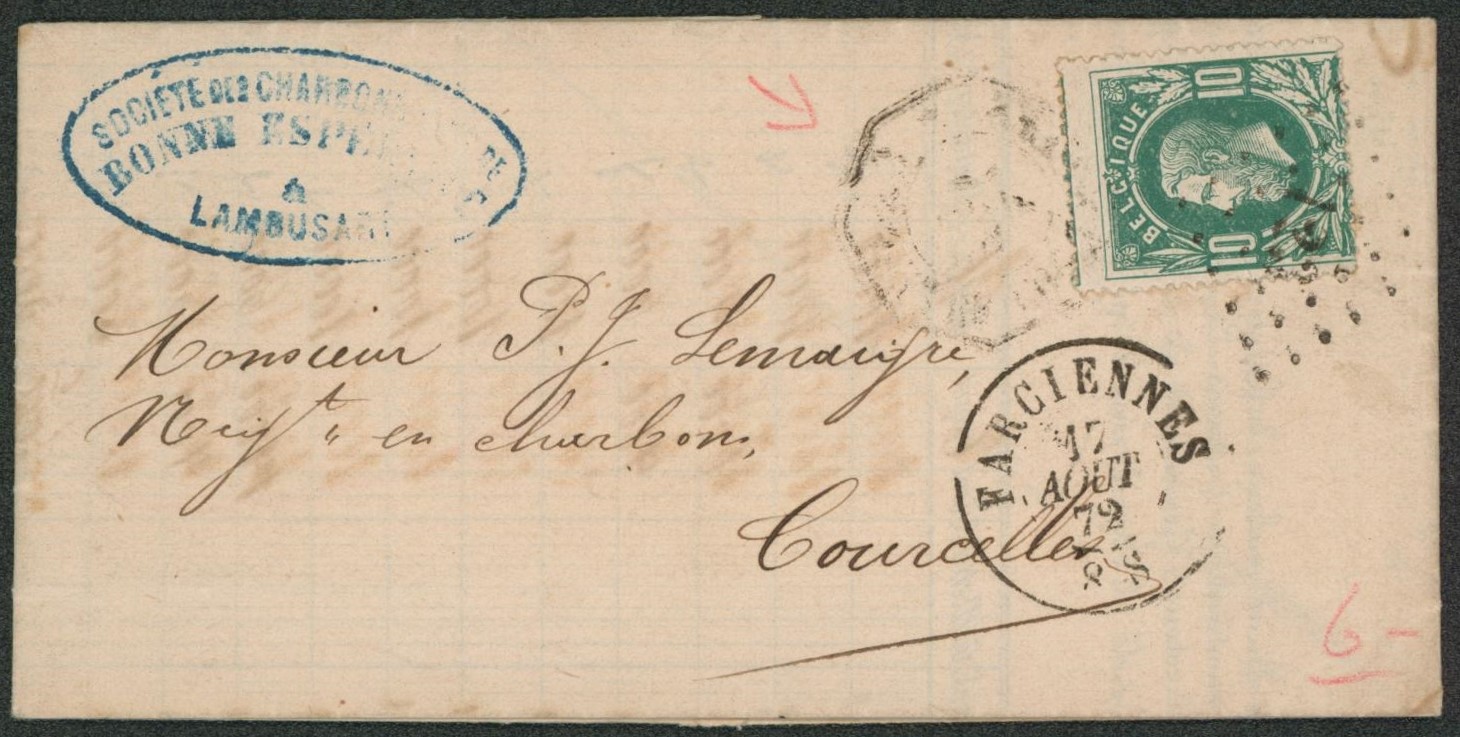 SOCIÉTÉ DES CHARBONN
BONNE ESPÉ
à
LAMBUSART
10
BELGIQUE
10
Monsieur P. J. Lemaigre,
Negt en charbons,
Courcelles
FARCIENNES
17
AOUT
72
6-